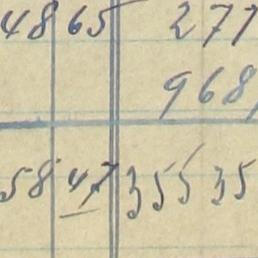 4865 277
968
5847 35535